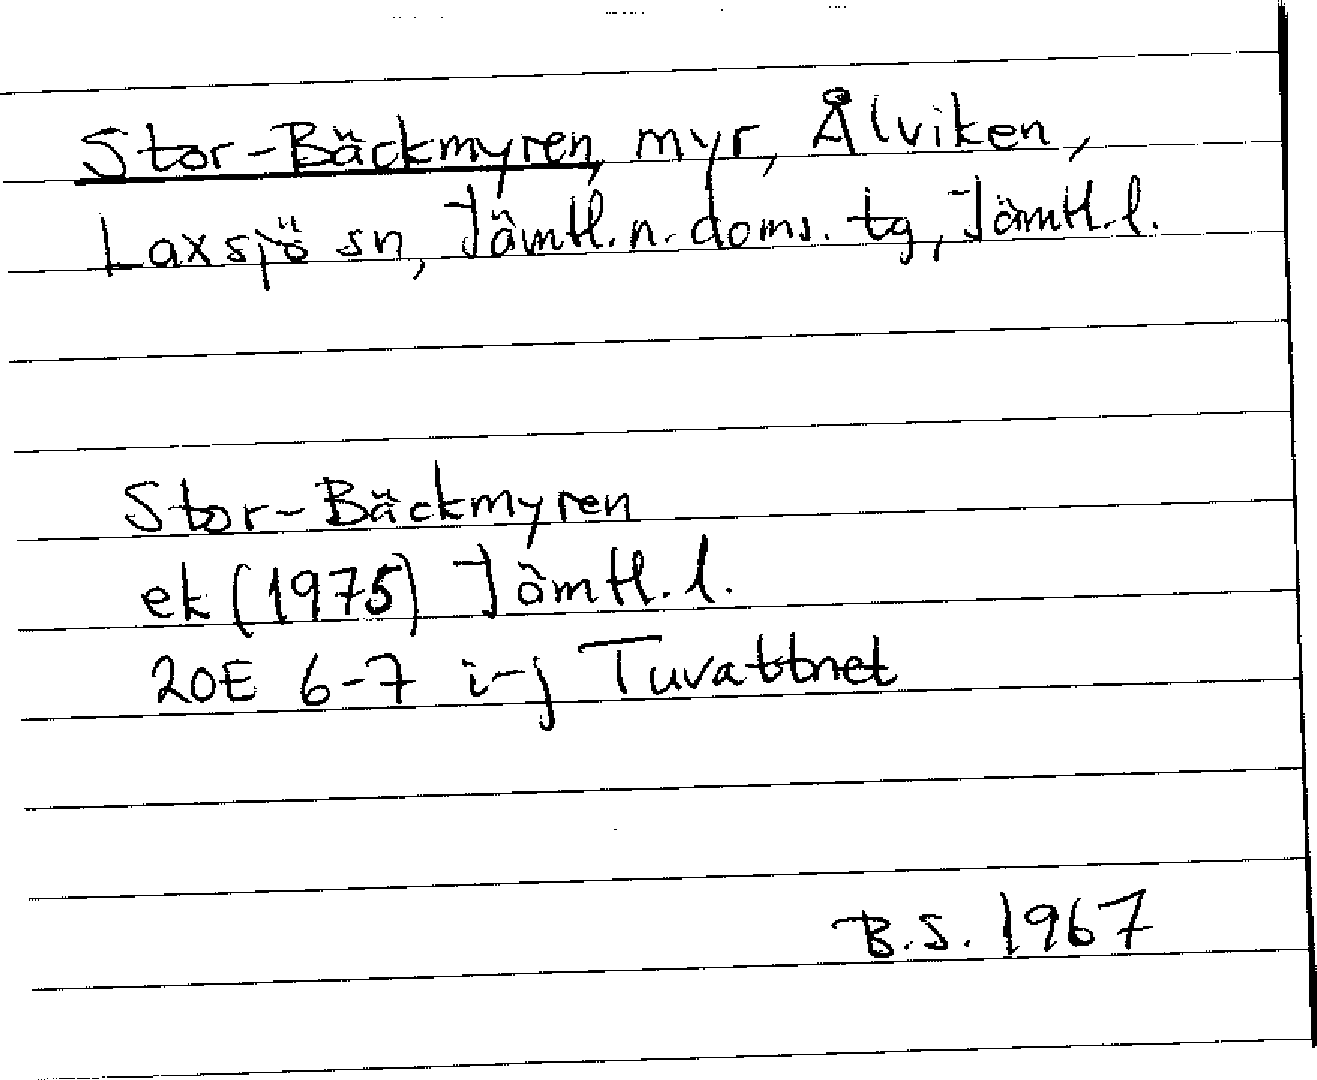 Stor-Bäckmyren, myr, Ålviken,
Laxsjö sn, Jämtl. n. doms. tg, Jämtl. l.
Stor-Bäckmyren
ek (1975) Jämtl. l.
20E 6-7 i-j Tuvattnet
B.S. 1967